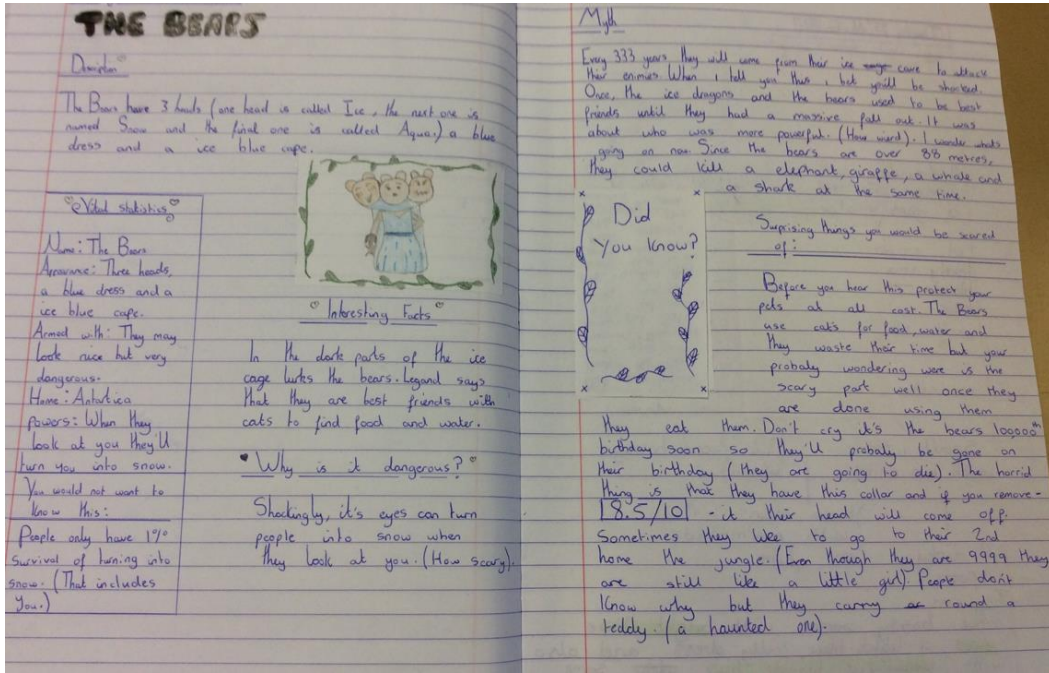 THE BEARS
Description
The Bears have 3 heads (one head is called Ice, the next one is
named Snow and the final one is called Aqua.) a blue
dress and a ice blue cape.
Vital statistics
Name: The Bears
Appearance: Three heads,
a blue dress and a
ice blue cape.
Armed with: They may
look nice but very
dangerous.
Home: Antartica
powers: When they
look at you they'll
turn you into snow.
You would not want to
know this:
People only have 1%
survival of turning into
snow. (That includes
you.)
Interesting Facts
In the dark parts of the ice
cage lurks the bears. Legand says
that they are best friends with
cats to find food and water.
Why is it dangerous?
Shockingly, it's eyes can turn
people into snow when
they look at you. (How scary).
Myth
Every 333 years they will come from their ice cave to attack
their enimies. When I tell you this, but you'll be shocked.
Once, the ice dragons and the bears used to be best
friends until they had a massive fall out. It was
about who was more powerful. (How wierd). I wonder whats
going on now. Since the bears are over 88 metres,
they could kill a elephant, giraffe, a whale and
a shark at the same time.
Did
You Know?
Suprising things you would be scared
of:
Before you hear this protect your
pets at all cost. The Bears
use cats for food, water and
they waste their time but your
probaly wondering were is the
scary part well once they
are done using them
they eat them. Don't cry it's the bears 100000th
birthday soon so they'll probaly be gone on
their birthday (they are going to die). The horrid
thing is that they have this collar and if you remove-
8.5/10 - it their head will come off.
Sometimes they to go to their 2nd
home the jungle. (Even though they are 9999 they
are still like a little girl) People don't
know why but they carry round a
teddy. (a haunted one).